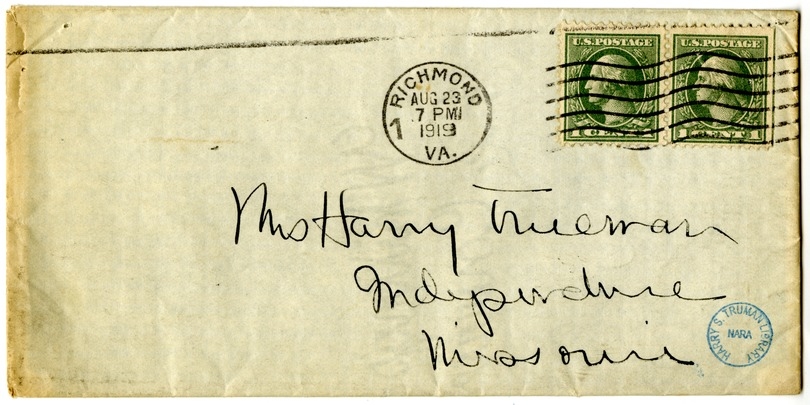 RICHMOND
AUG 23
7 PM
1
1919
VA.
U.S. POSTAGE
U.S. POSTAGE
1 CENT 1
Mrs Harry Trueman
Independence
Missouri
HARRY S. TRUMAN LIBRARY
NARA